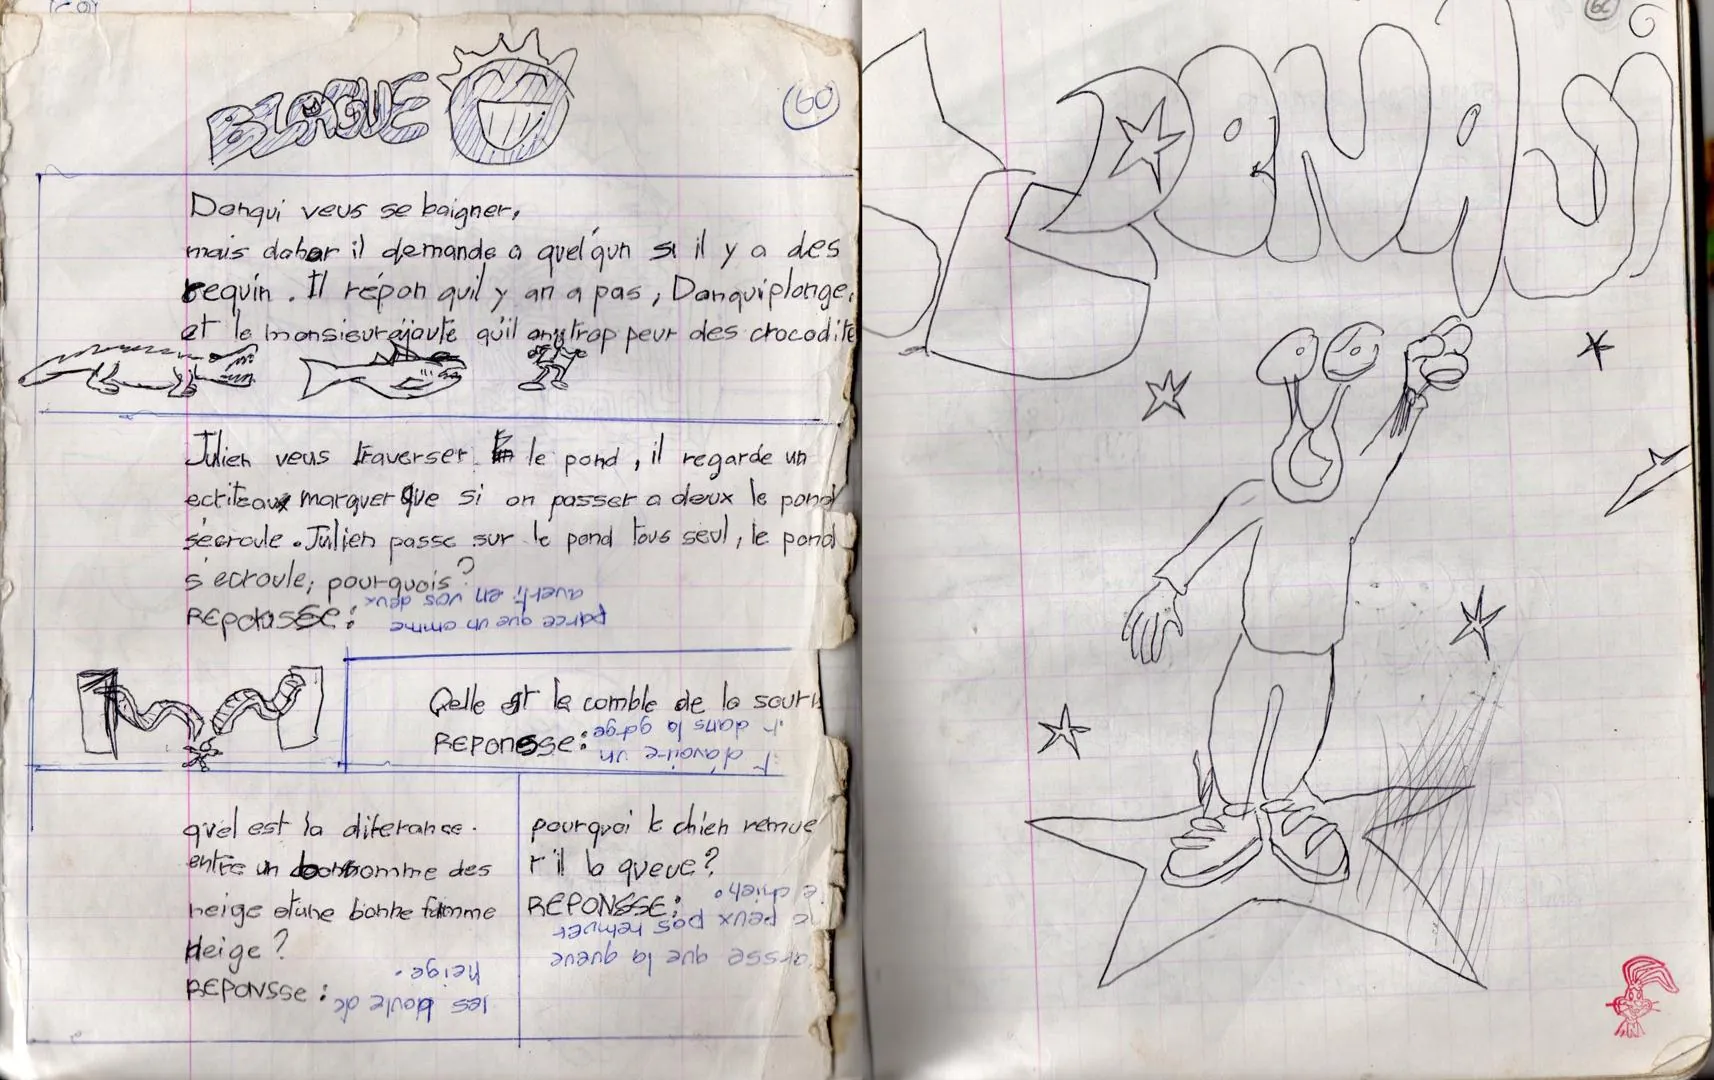 BLAGUE
60
Donqui veus se baigner,
mais dabor il demande a quelqun si il y a des
requin. Il répon quil y an a pas, Donqui plonge,
et le monsieur ajoute qu'il any trop peur des crocodile
Julien veus traverser le pond, il regarde un
ecriteaux marquer que si on passer a deux le pond
sécroule. Julien passe sur le pond tous seul, le pond
s'ecroule; pourquois?
REPONSSE: parce que un omme
averti en vos deux
Qelle est le comble de la souris
REPONSSE: d'avoire un
dans la gorge
quel est la diferance.
entre un bonhomme des
neige etune bonne famme
deige?
REPONSSE: les boule de
neige.
pourquoi le chien remue
t il la queue?
REPONSSE: que la queue
peux pas remuer
le chien.
66